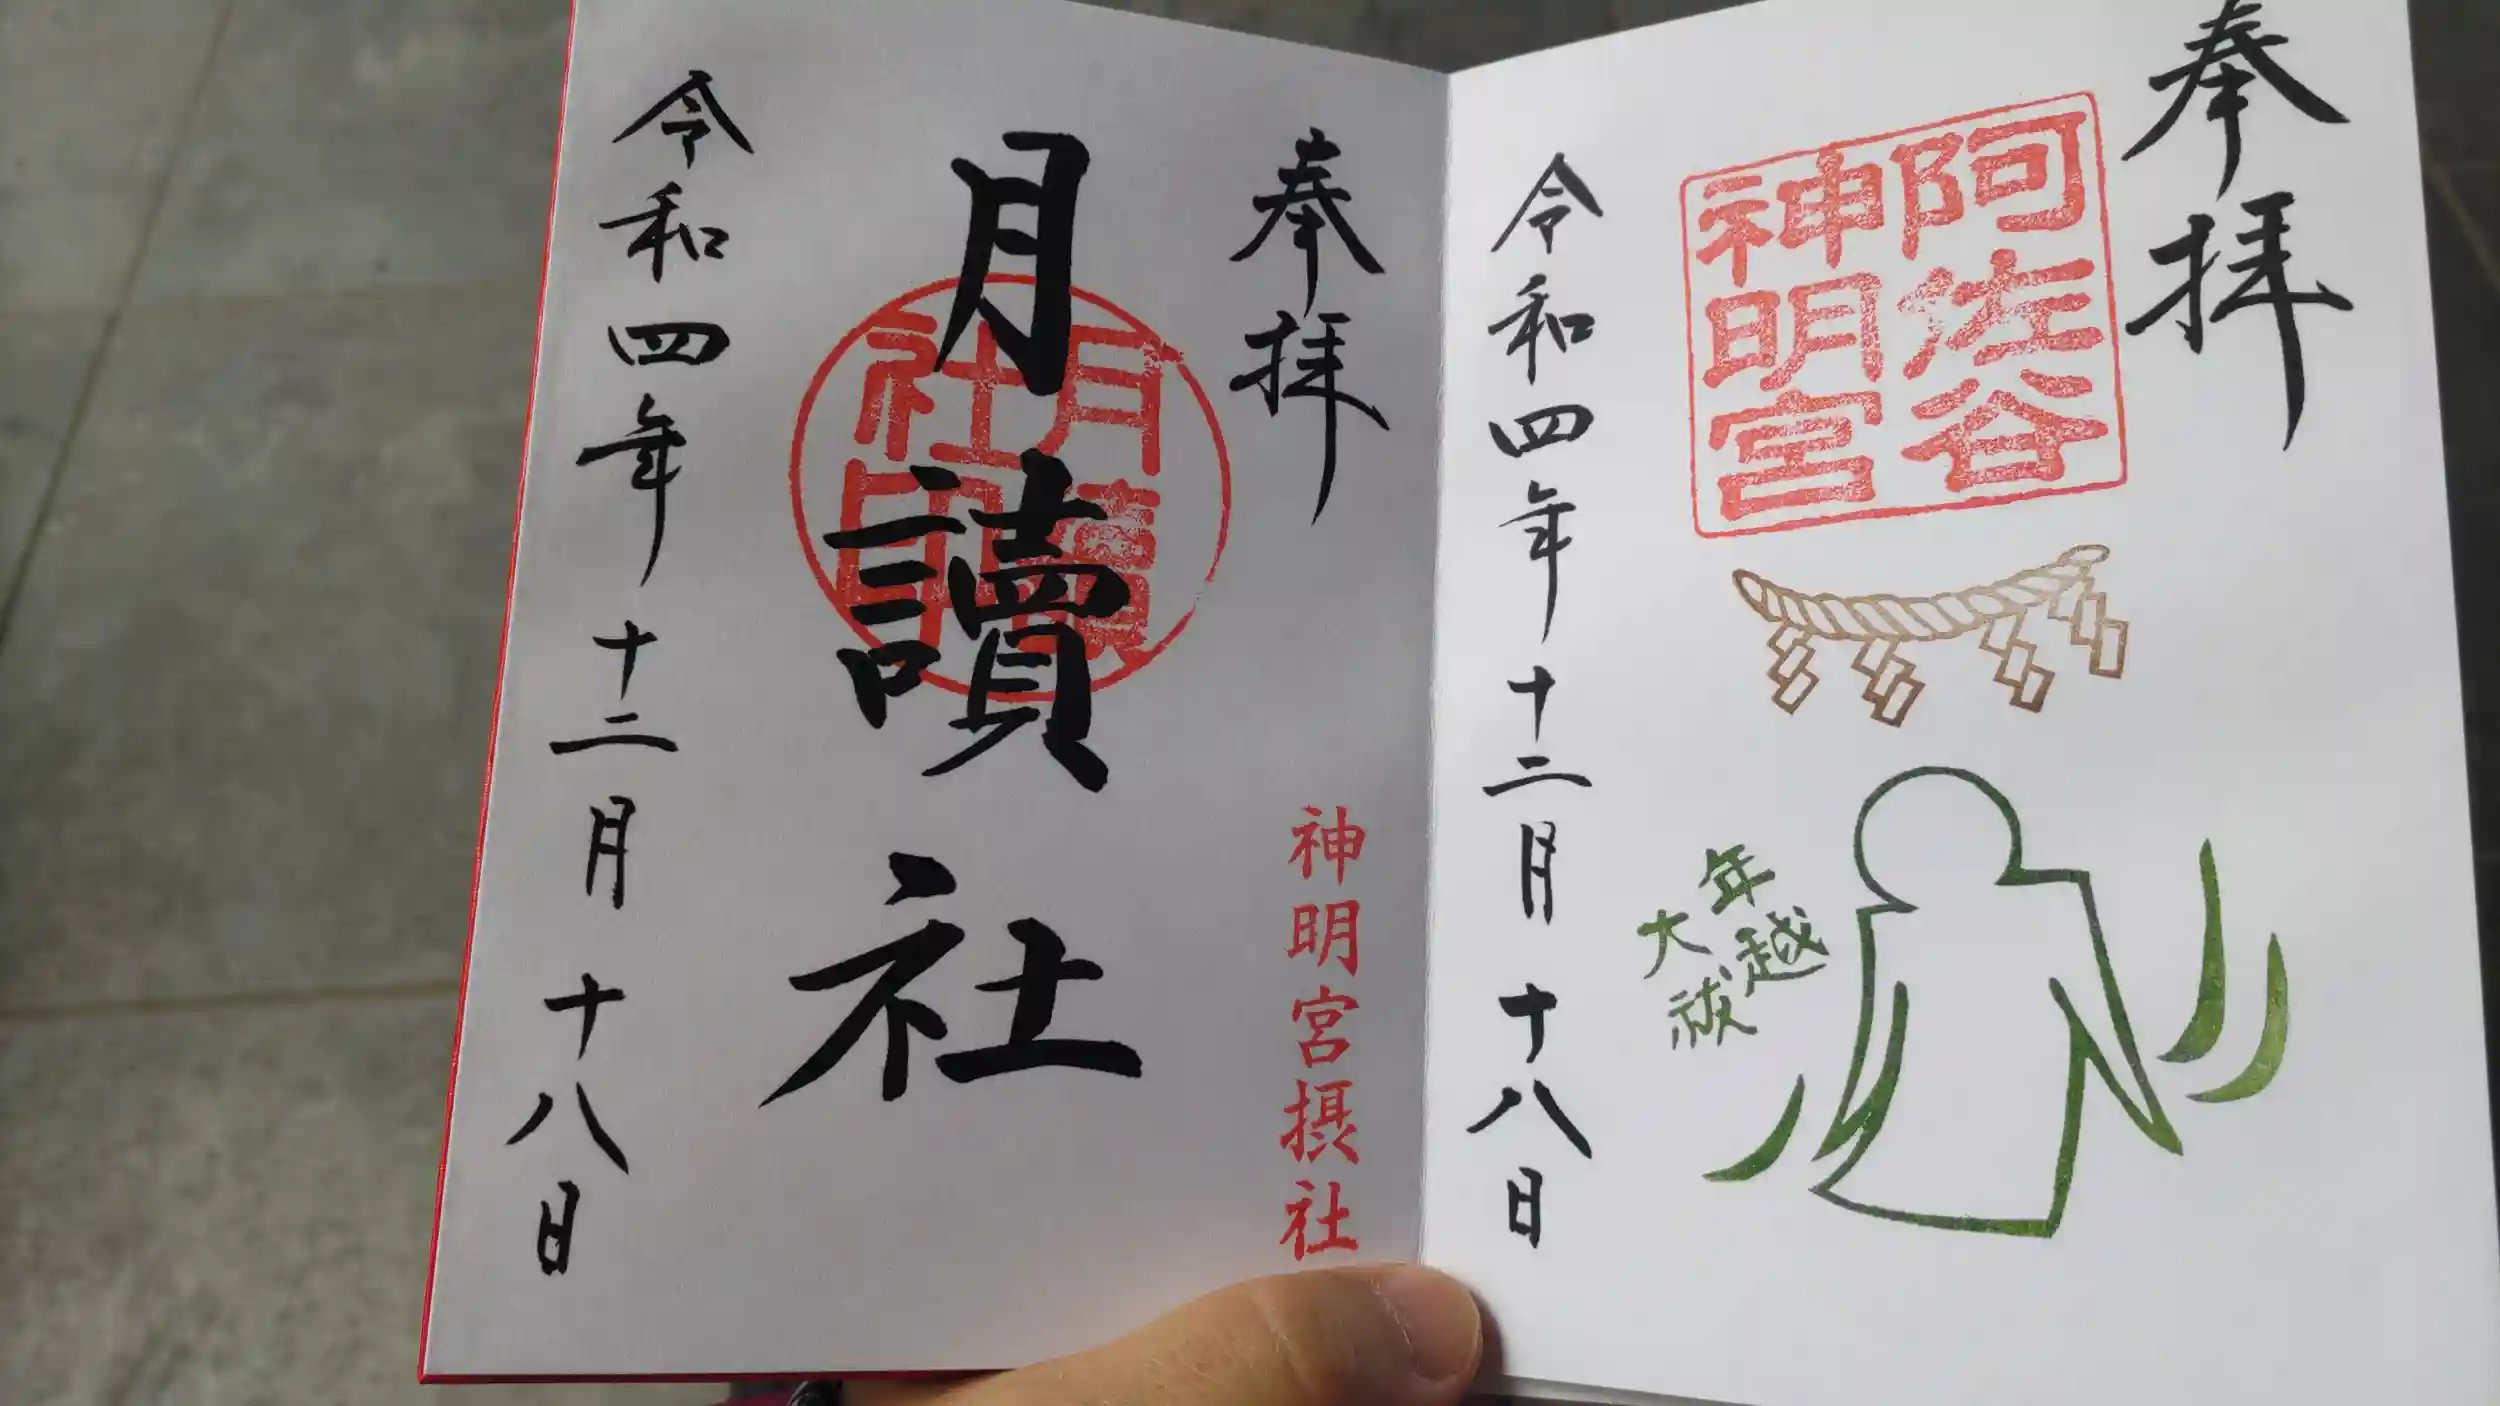 奉拝
阿佐谷
神明宮
年越
大祓
令和四年十二月十八日
奉拝
神明宮摂社
月讀社
月讀
社印
令和四年十二月十八日